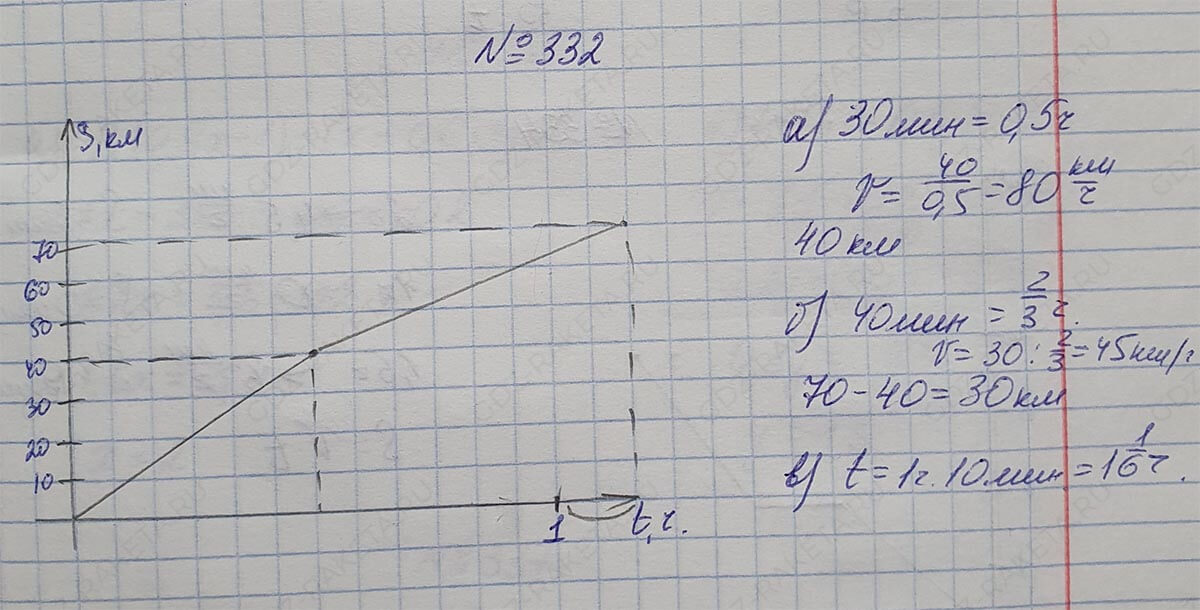 №332
S, км
70
60
50
40
30
20
10
1
t, ч.
а) 30 мин = 0,5 ч
V = 40/0,5 = 80 км/ч
40 км
б) 40 мин = 2/3 ч.
V = 30 : 2/3 = 45 км/ч
70 - 40 = 30 км
в) t = 1 ч. 10 мин = 1 1/6 ч.